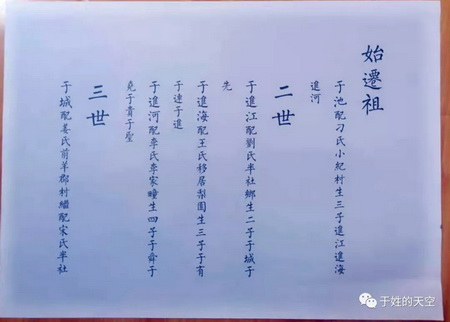 始遷祖
于池配刁氏小紀村生三子遑江遑海
遑河
二世
于遑江配劉氏半社鄉生二子于城于
先
于遑海配王氏移居梨園生三子于有
于連于進
于遑河配李氏李家疃生四子于舜于
堯于貴于聖
三世
于城配姜氏前羊郡村繼配宋氏半社
于姓的天空